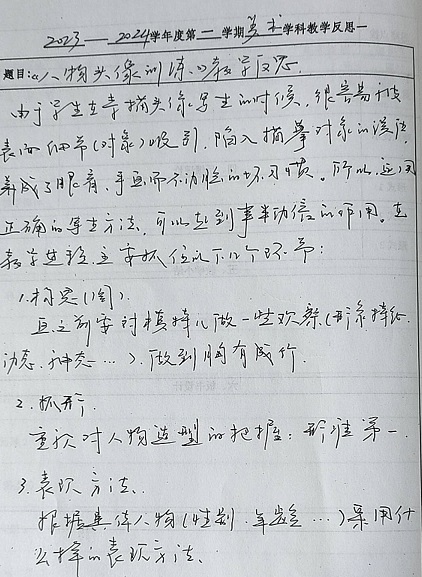 2023——2024学年度第一学期美术学科教学反思一
题目:《人物头像训练》教学反思
由于学生在素描头像写生的时候,很容易被
表面细节(对象)吸引,陷入描摹对象的误区
养成了眼看、手画而不动脑的坏习惯。所以,运用
正确的写生方法,可以起到事半功倍的作用。在
教学过程,主要抓住以下几个环节:
1.构思(图)。
画之前要对模特儿做一些观察(形象特征
动态、神态…)。做到胸有成竹。
2.抓形。
重视对人物造型的把握:形准第一。
3.表现方法。
根据具体人物(性别、年龄…)采用什
么样的表现方法。